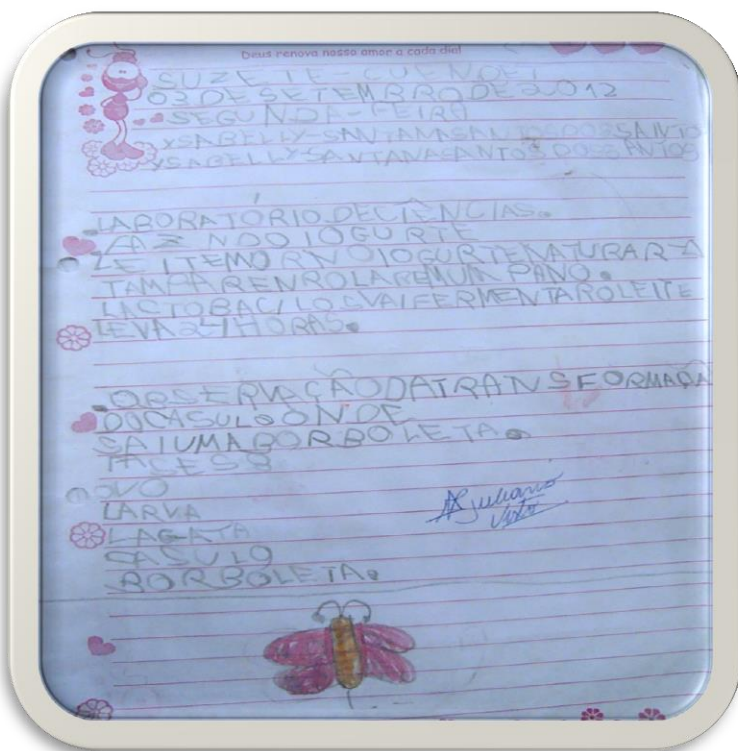 Deus renova nosso amor a cada dia!
SUZETE-CUENDET
03 DE SETEMBRO DE 2.012
SEGUNDA-FEIRA
YSABELLY-SANTANASANTOSDOSSANTO
YSABELLYSANTANASANTOS DOSSANTOS
LABORATÓRIO DECIÊNCIAS.
FAZENDO IOGURTE
LEITEMORNOIOGURTENATURAR
TAMPARENROLAREMUM PANO.
LACTOBACILOSVAIFERMENTAROLEITE
LEVA24HORAS.
.OBSERVAÇÃODATRANSFORMAÇA
DOCASULOONDE
SAIUMABORBOLETA.
FACESS
OVO
LARVA
LAGATA
CASULO
BORBOLETA.
Juliano
Visto